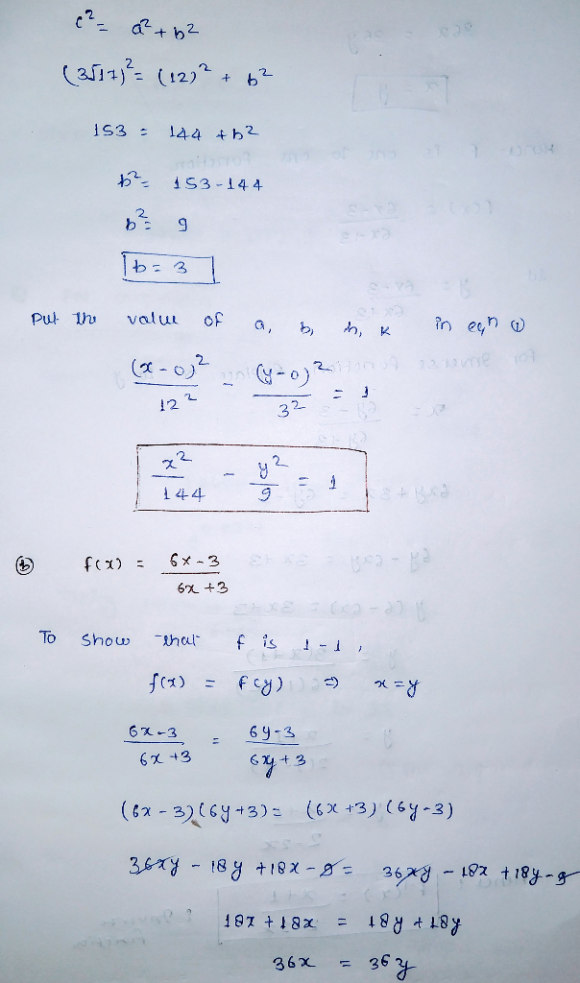 c² = a² + b²
(3√17)² = (12)² + b²
153 = 144 + b²
b² = 153 - 144
b² = 9
b = 3
Put the value of a, b, h, k in eqⁿ ①
(x - 0)² / 12² - (y - 0)² / 3² = 1
x² / 144 - y² / 9 = 1
ⓑ f(x) = (6x - 3) / (6x + 3)
To show that f is 1-1,
f(x) = f(y) ⇒ x = y
(6x - 3) / (6x + 3) = (6y - 3) / (6y + 3)
(6x - 3)(6y + 3) = (6x + 3)(6y - 3)
36xy - 18y + 18x - 9 = 36xy - 18x + 18y - 9
18x + 18x = 18y + 18y
36x = 36y